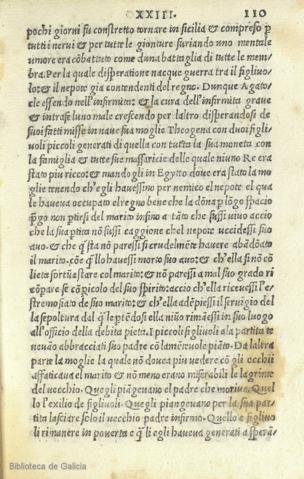 XXIII. 110
pochi giorni fu constretto tornare in sicilia & compreso p
tutti i nervi & per tutte le gionture furiando uno mentale
umore era cõbatteto come d'una battaglia di tutte le mem/
bra. Per la quale disperatione nacque guerra tra il figliuo/
lo: & il nepote gia contendenti del regno. Dunque Agato/
cle essendo nell'infirmita: & la cura dell'infirmita grave
& intrase luno male crescendo per laltro disperandosi de
suoi fatti misse in nave sua moglie Theogena con duoi figli/
voli piccoli generati di quella con tutta la sua moneta con
la famiglia & tutte sue massaricie delle quale niuno Re era
stato piu ricco: & mandogli in Egytto dove era stato la mo/
glie tenendo ch'egli havessino per nemico el nepote el qua
le haveva occupato el regno bene che la dõna p lõgo spacio
pgo non ptiesi del marito insino a tãto che sussi viuo accio
che la sua ptita nõ sussi caggione che l nepote uccidessi suo
avo. & che q̃sta nõ paressi si crudelmẽte havere abãdõato
il marito. cõe q̃llo havessi morto suo avo: & ch'ella si nõ cõ
lieta fortũa stare col marito: & nõ paressi a mal suo grado ri
cõpare se cõ picolo del suo spirito: accio ch'ella ricevessi l'e/
stremo fiato de suo marito: & ch'ella adẽpiessi il servigio del
la sepoltura dal q̃l leptẽdosi ella niũo rimãessi in suo luogo
all'officio della debita pieta. I piccoli figliuoli ala partita te
nevão abbracciati suo padre cõ lamẽtevole piãto. Da laltra
parte la moglie la quale nõ doucea piu vedere cõ gli occhii
affaticava el marito & nõ meno erano miserabili le lagrime
del vecchio. Quegli piãgevano el padre che moriva. Quel
lo l'exilio de figlivoli. Quegli piangevano per la sua par/
tita lasciare solo il vecchio padre infirmo. Quello e figlivo
li rimanere in poverta e q̃li egli haueva generati a sperã/
Biblioteca de Galicia